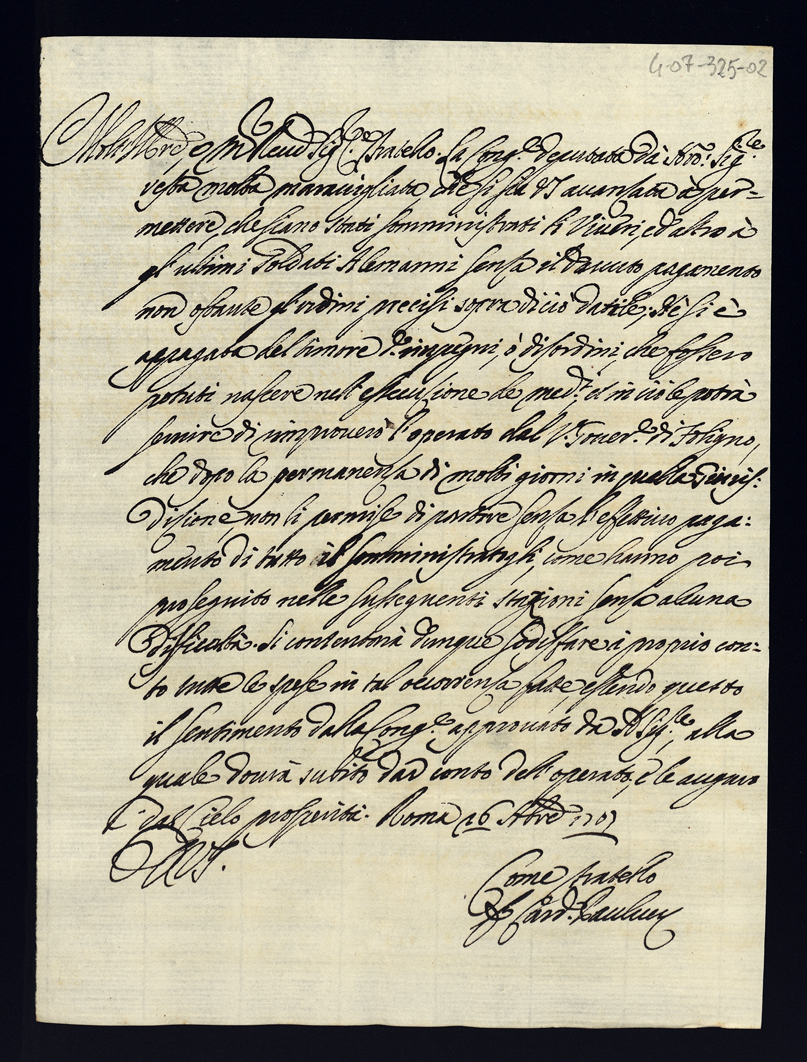 4-07-325-02
Molt' Ill.re e m.to Reu.do Sig.r Fratello. La Cong.ne deputata da N.ro Sig.re
resta molto marauigliata, che si sia VS auanzata à per=
mettere, che siano stati somministrati li Viueri, ed altro à
gl'ultimi Soldati Alemanni senza il douuto pagamento
non ostante gl'ordini precisi sopra di ciò datile; Nè si è
appagata del timore d'impegni, ò disordini, che fossero
potuti nascere nell'essecuzione de med.i et in ciò le potrà
seruire di rimprouero l'operato dal V. Gouer.re di Foligno,
che dopo la permanenza di molti giorni in quella Giuris:
dizione non li permise di partire senza l'effettiuo paga:
mento di tutto il somministratogli, come hanno poi
proseguito nelle susseguenti stazioni senza alcuna
difficoltà. Si contentarà dunque sodisfare à proprio con=
to tutte le spese in tal occorrenza fatte, essendo questo
il sentimento dalla Cong.ne approuato da N Sig.re, alla
quale dourà subito dar conto dell'operato, e le auguro
dal Cielo prosperità. Roma 16 Nbre 1707
Di VS.
Come fratello
F Card. Paulucci